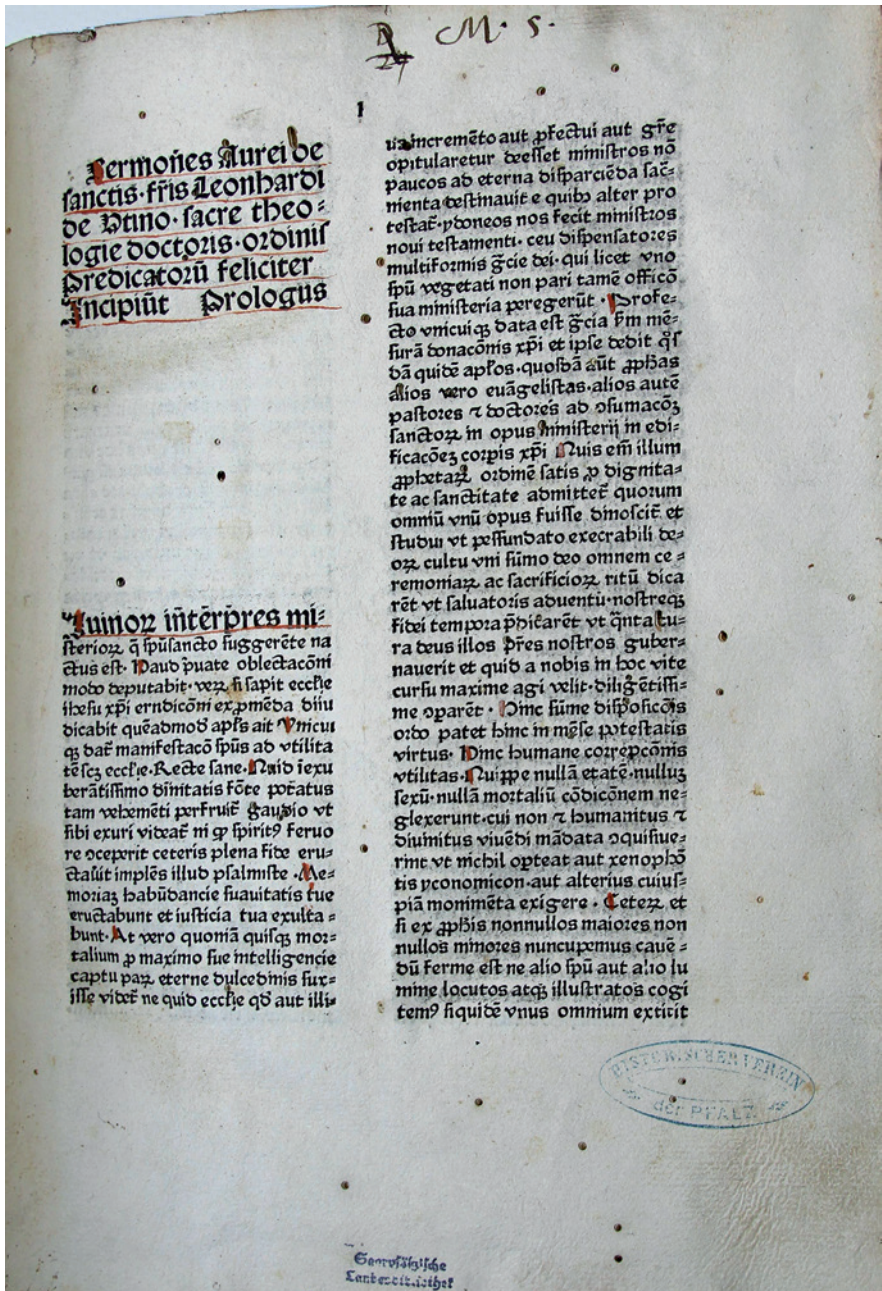 A M. 5.
27
1
Sermones Aurei de
sanctis·fr̄is Leonhardi
de Vtino·sacre theo⸗
logie doctoris·ordinis
Predicatorū feliciter
Incipiūt Prologus
iuinoꝝ int̄erp̄res mi⸗
sterioꝝ q̄ sp̄usancto suggerēte na
ctus est· Haud p̄uate oblectacōni
modo deputabit·veꝝ si sapit eccl̄ie
ihesu xp̄i erndicōni exꝓmēda diiu
dicabit quēadmoď apl̄s ait Vnicui
qꝫ dat̄ manifestacō sp̄us ad vtilita
tē scꝫ eccl̄ie·Recte sane·Quid īexu
berātissimo diuitatis fōte pot̄atus
tam vehementi perfruit̄ gaudio vt
sibi exuri videat̄ ni qꝫ spiritꝰ feruo
re ↄceperit ceteris plena fide eru⸗
ctauit implēs illud psalmiste ·Me⸗
moriaꝫ habūdancie suauitatis tue
eructabunt et iusticia tua exulta⸗
bunt·At vero quoniā quisqꝫ mor⸗
talium ꝓ maximo sue intelligencie
captu paꝝ eterne dulcedinis sux⸗
isse videt̄ ne quid eccl̄ie qď aut illi⸗
us incremēto aut ꝓfectui aut gr̄e
opitularetur deesset ministros nō
paucos ad eterna disparciēda sac̄⸗
menta destinauit e quibꝰ alter pro
testat̄·ydoneos nos fecit ministros
noui testamenti· ceu dispensatores
multiformis gr̄cie dei· qui licet vno
sp̄u vegetati non pari tamē officō
sua ministeria peregerūt ·Profe⸗
cto vnicuiqꝫ data est gr̄cia s̄m mē⸗
surā donacōnis xp̄i et ipse dedit q̄s
dā quidē apl̄os·quosdā aūt ꝓph̄as
Alios vero euāgelistas·alios autē
pastores ⁊ doctores ad ↄsumacōꝫ
sanctoꝝ in opus ministerij in edi⸗
ficacōeꝫ corp̄is xp̄i Quis em̄ illum
ꝓphetaꝝ ordinē satis ꝓ dignita⸗
te ac sanctitate admittet̄ quorum
omniū vnū opus fuisse dinoscit̄ et
studui vt pessundato execrabili de⸗
oꝝ cultu vni sūmo deo omnem ce⸗
remoniaꝝ ac sacrificioꝝ ritū dica
rēt vt saluatoris aduentū·nostreqꝫ
fidei tempora p̄dicarēt vt q̄nta cu⸗
ra deus illos p̄res nostros guber⸗
nauerit et quid a nobis in hoc vite
cursu maxime agi velit·diligētissi⸗
me ↄparēt · Hinc sūme disposicōis
ordo patet hinc in mēse potestatis
virtus· Hinc humane correpcōnis
vtilitas·Quippe nullā etatē·nulluꝫ
sexū·nullā mortaliū cōdicōnem ne⸗
glexerunt·cui non ⁊ humanitus ⁊
diuinitus viuēdi mādata ↄquisiue⸗
rint vt nichil oꝑteat aut xenophō
tis yconomicon·aut alterius cuius⸗
piā monimēta exigere · Ceteꝝ et
si ex ꝓph̄is nonnullos maiores non
nullos minores nuncupemus cauē⸗
dū ferme est ne alio sp̄u aut alio lu
mine locutos atqꝫ illustratos cogi
temꝰ siquidē vnus omnium extitit
HISTORISCHER VEREIN
der PFALZ
Landesbibliothek